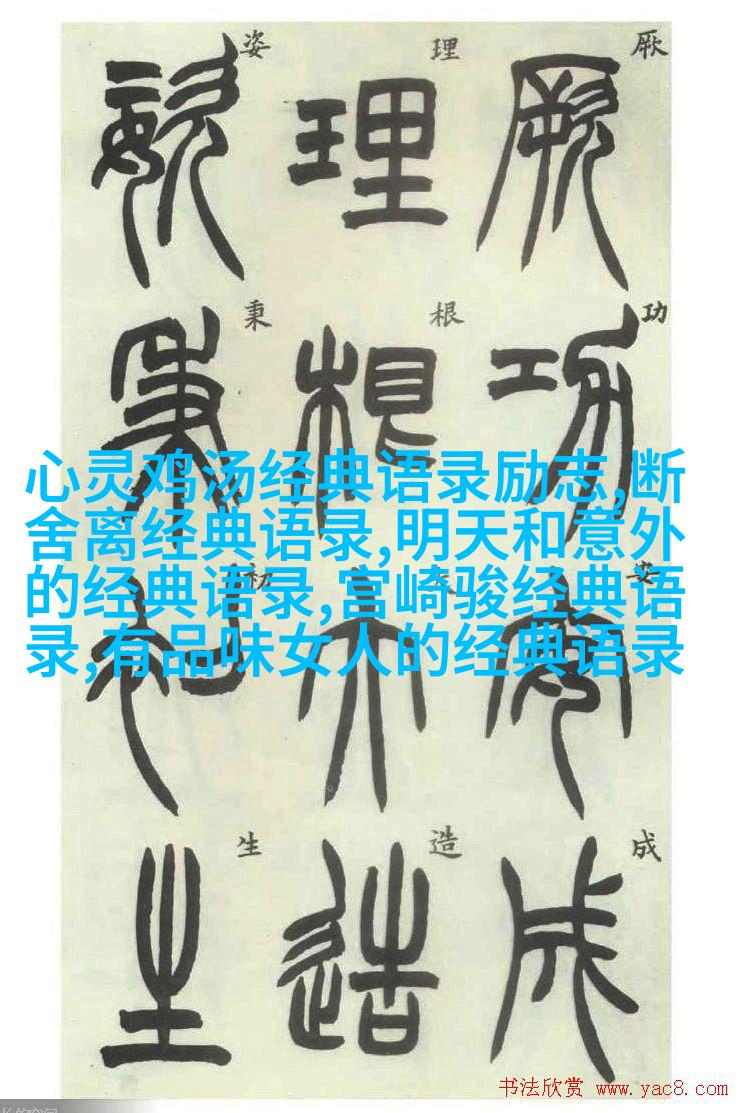 厥功安成
理根大造
姿秉初生
厥
功
安
成
理
根
造
姿
秉
初
生
心灵鸡汤经典语录励志,断
舍离经典语录,明天和意外
的经典语录,宫崎骏经典语
录,有品味女人的经典语录
书法欣赏 www.yac8.com